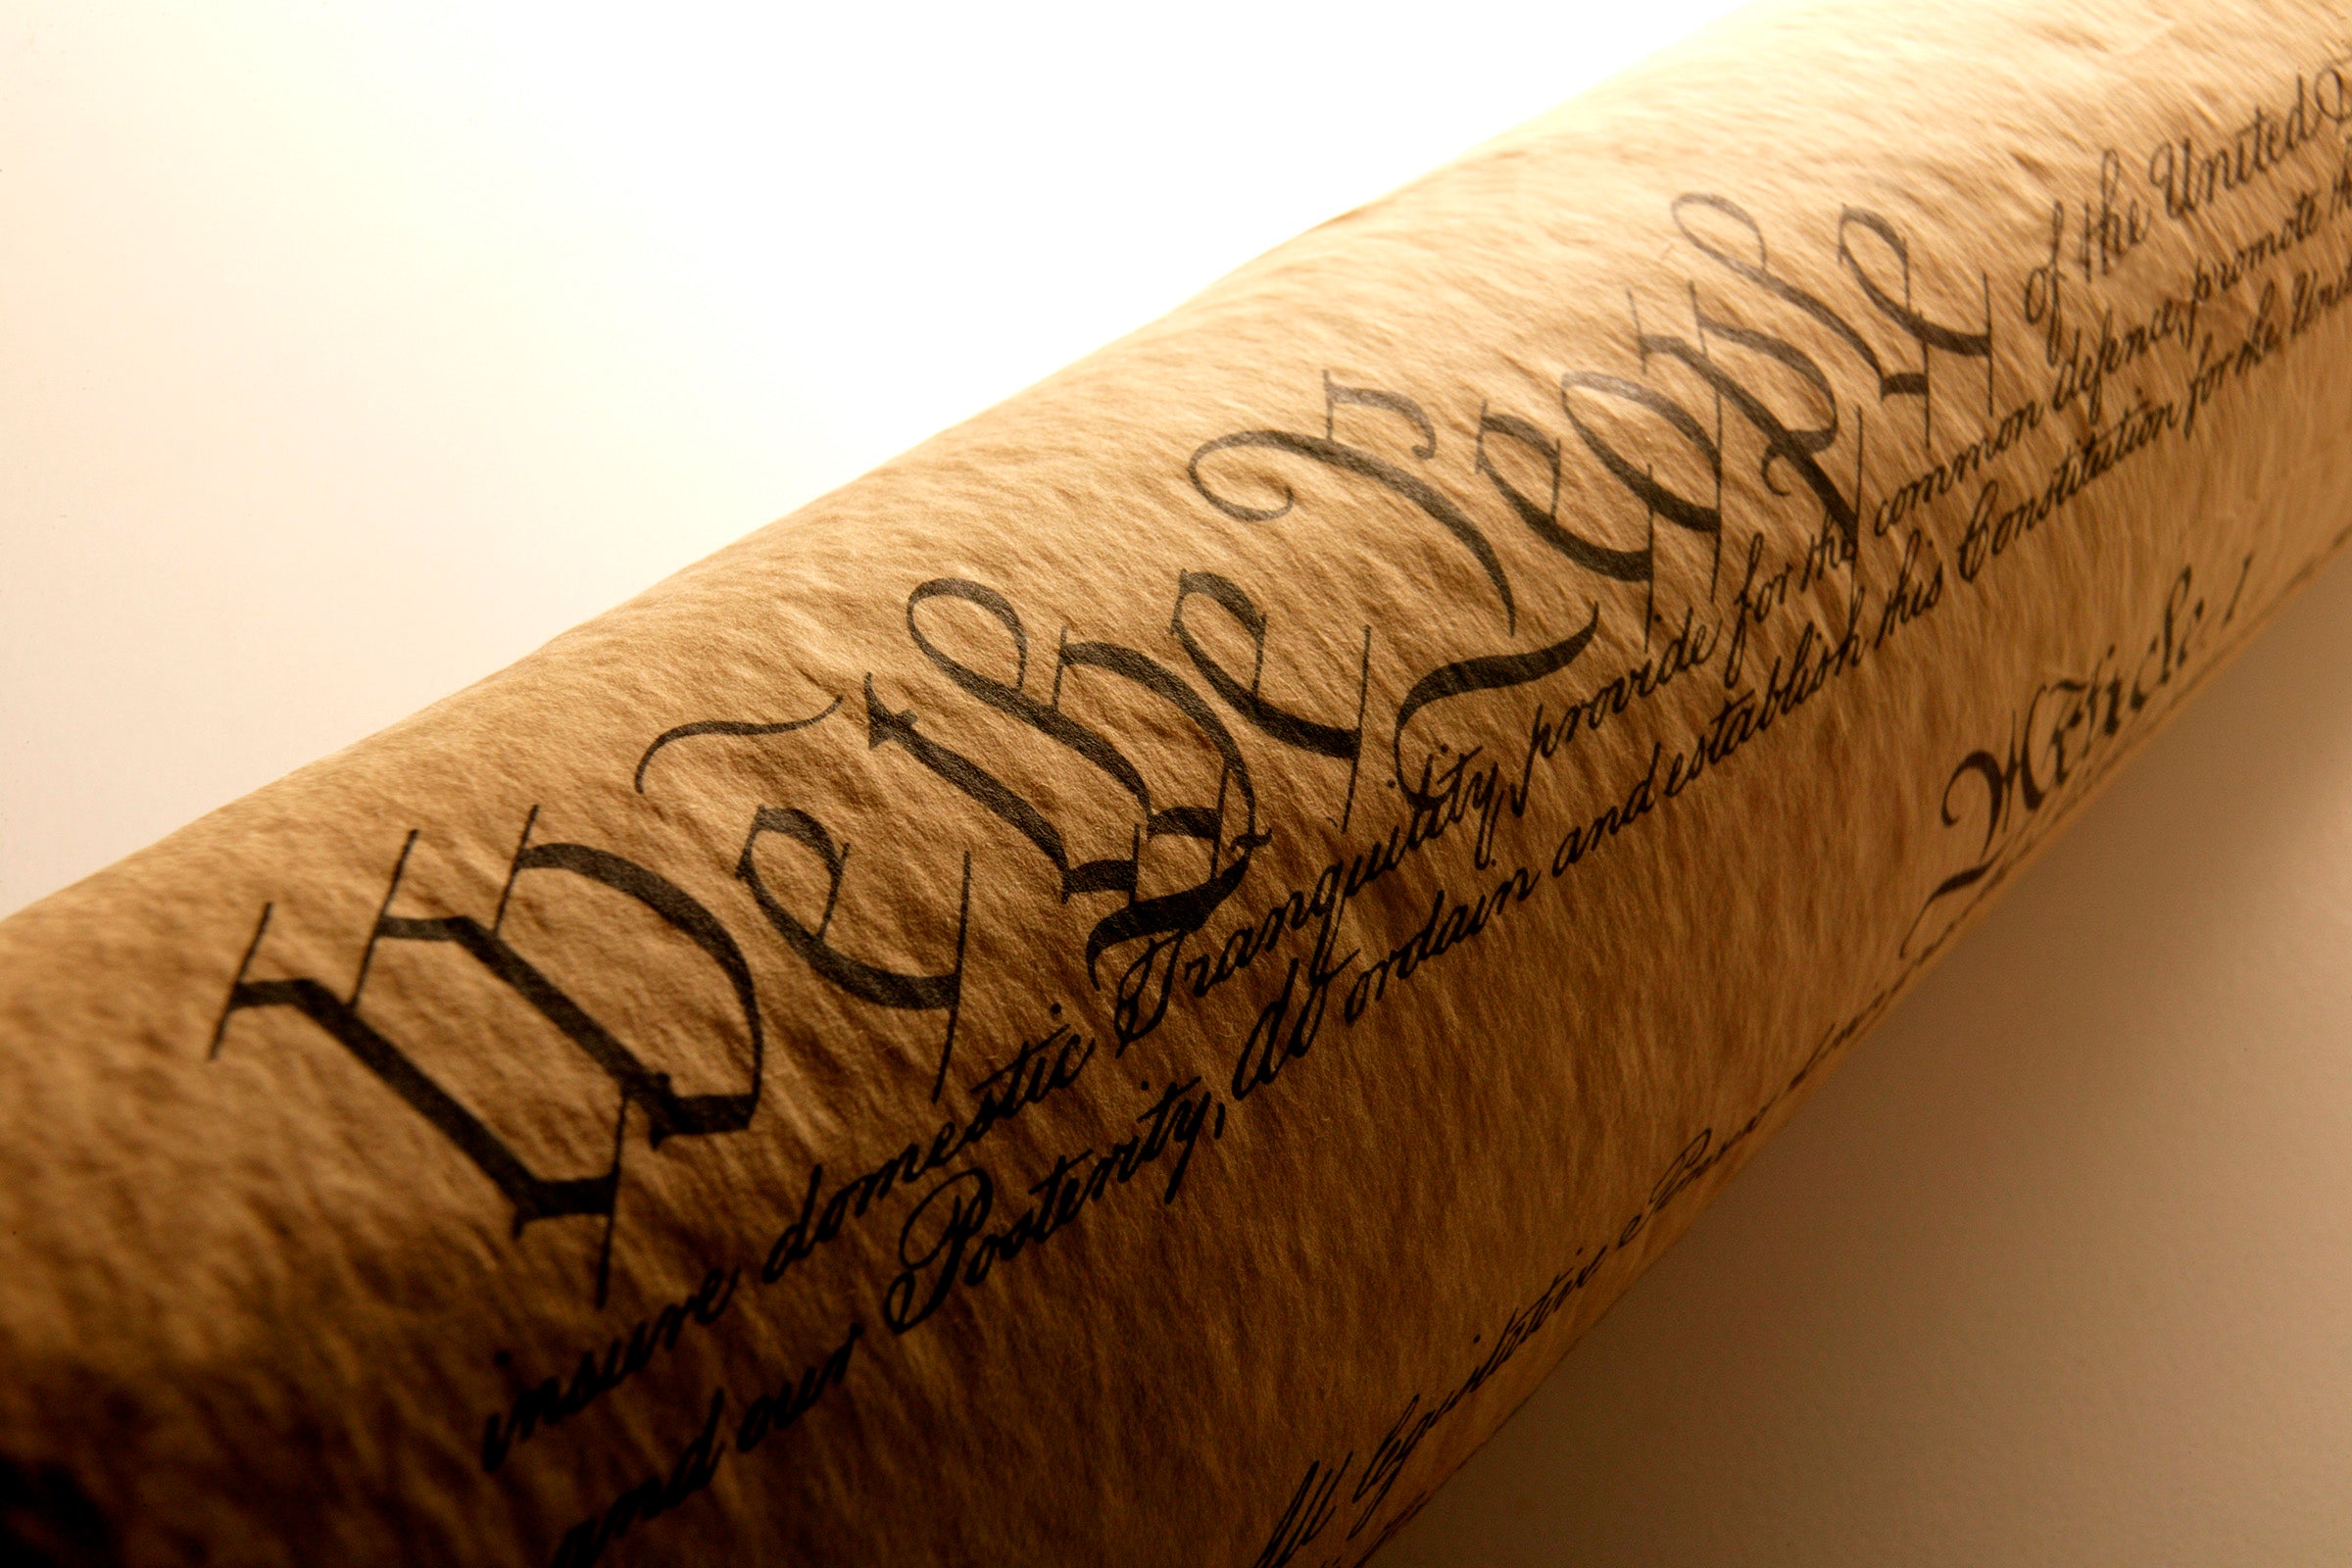 We the People of the United
insure domestic Tranquility, provide for the common defence, promote
and our Posterity, do ordain and establish this Constitution for the
Article. I
All legislative Powers